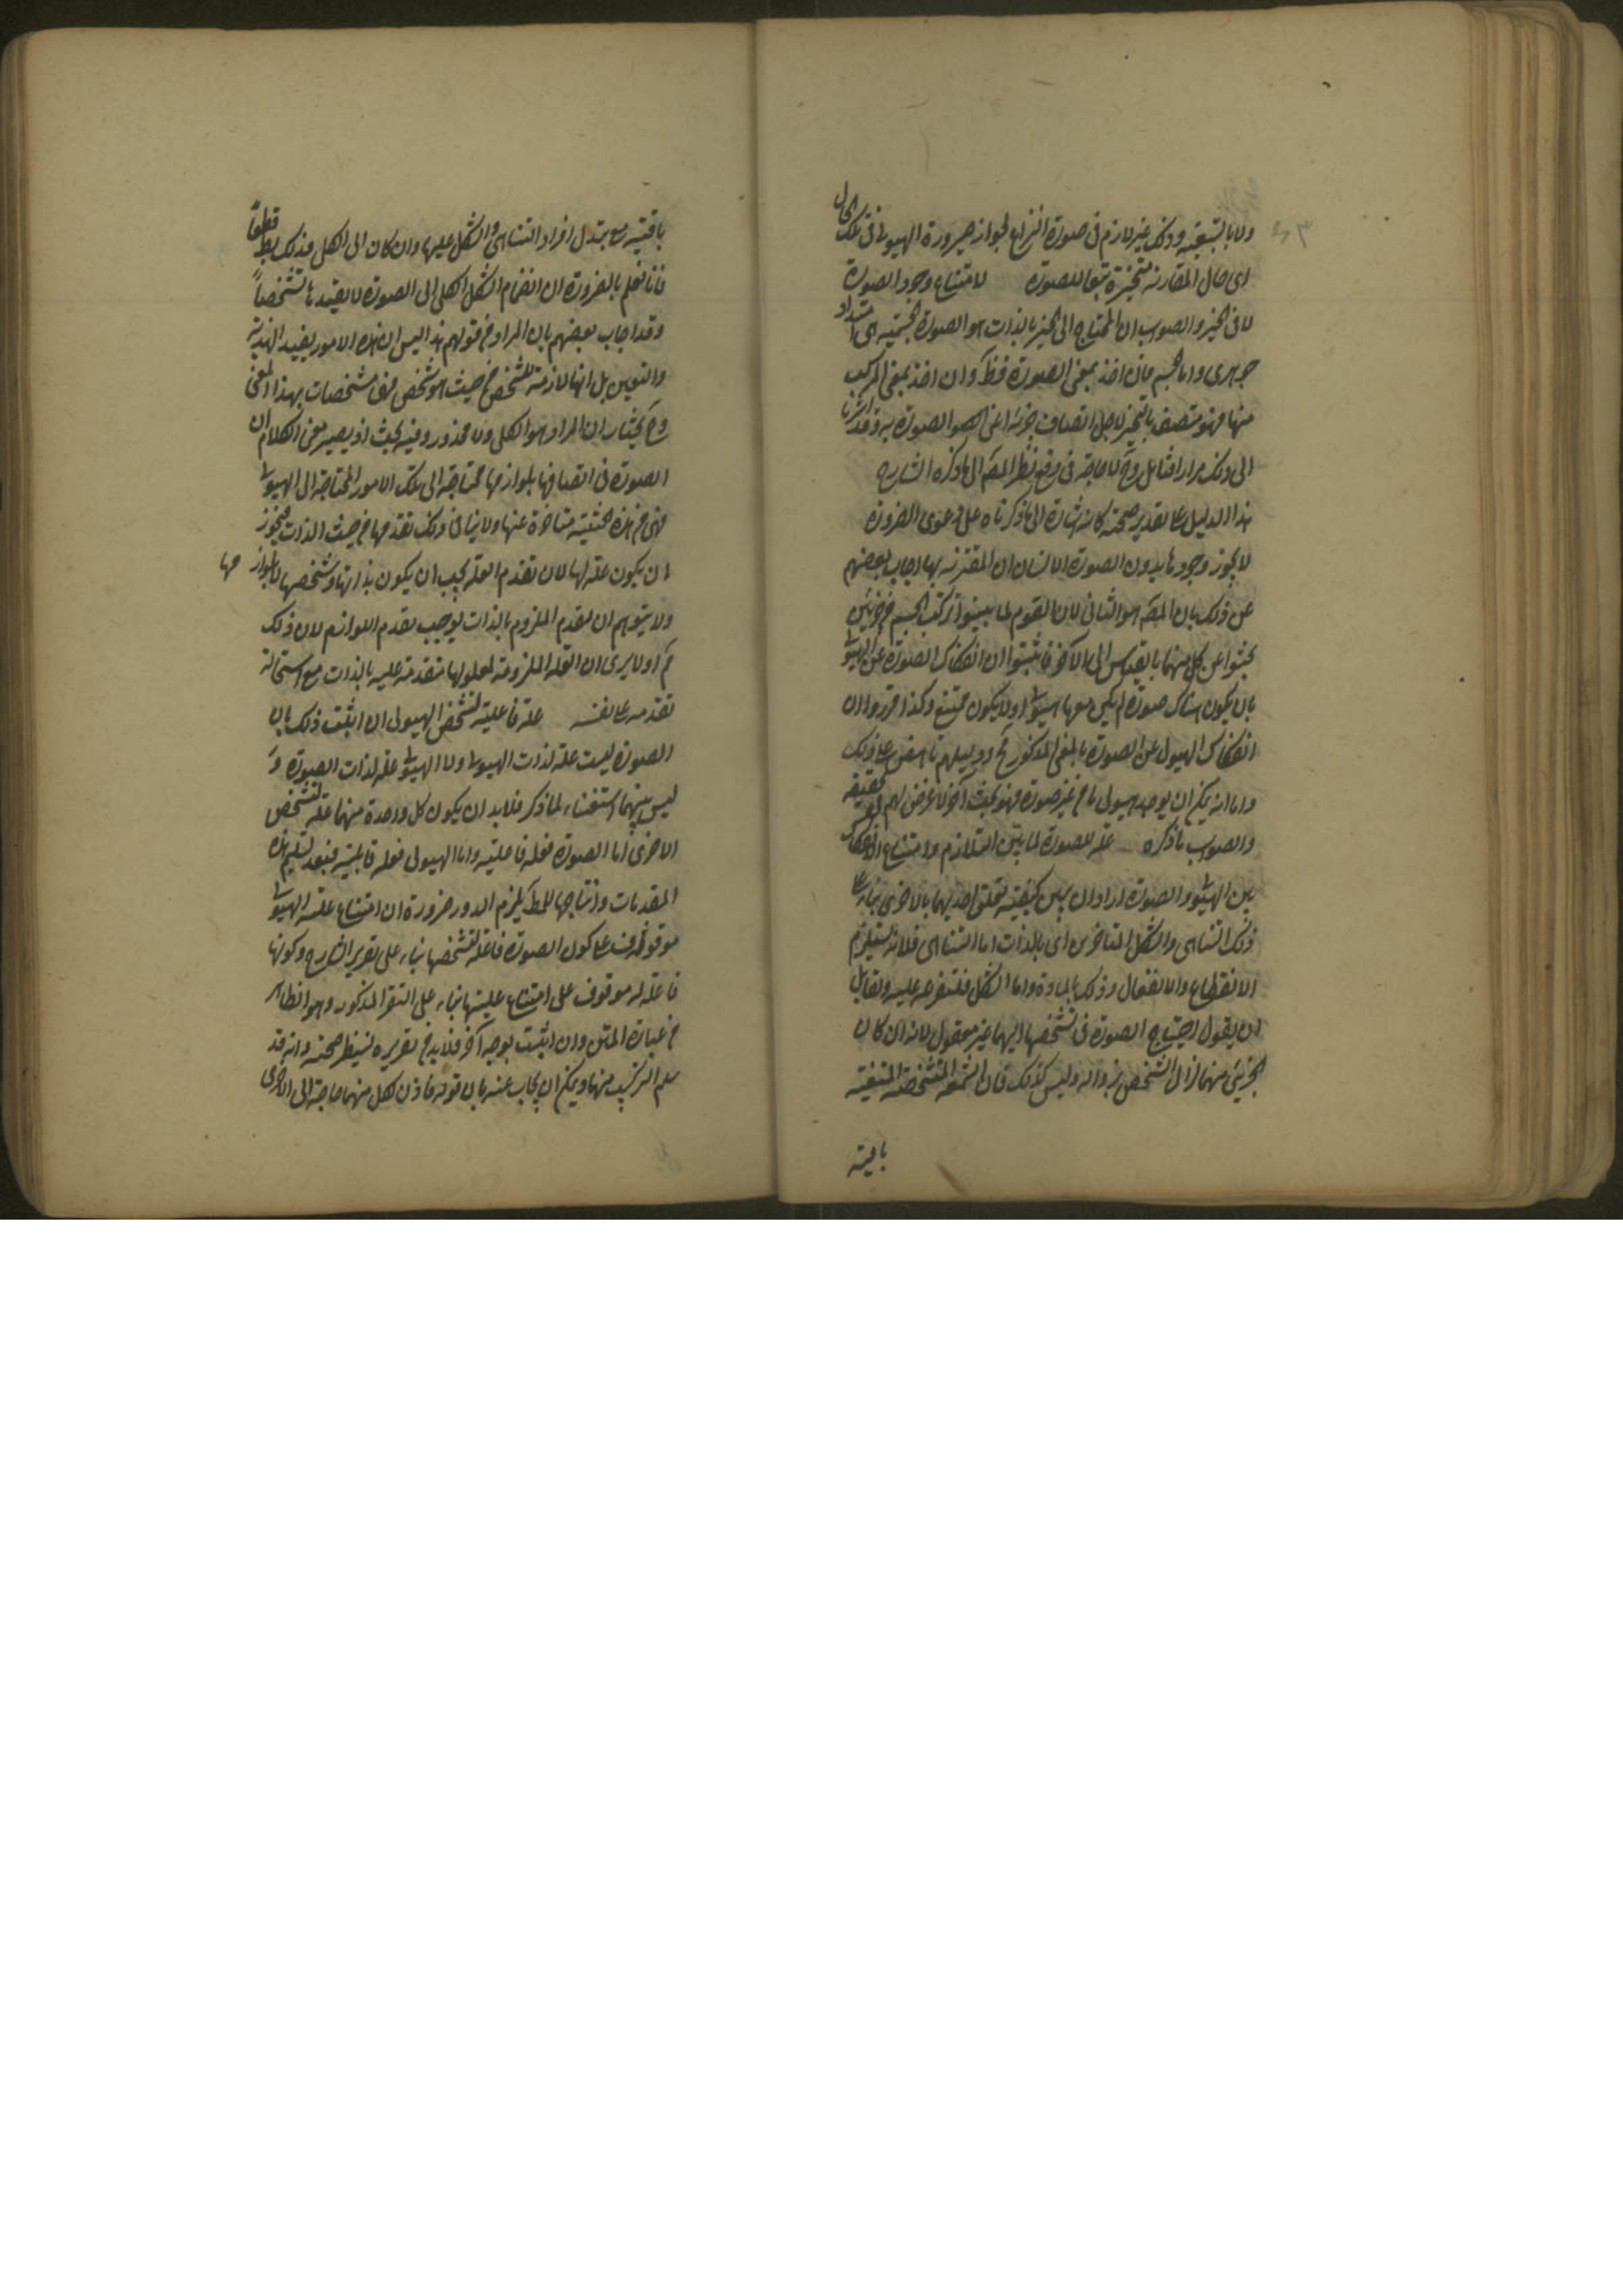 ولا بالتبعية وذلك غير لازم فى صورة النزاع لجواز صيرورة الهيولى فى تلك الحال
اى حال المقارنة متحيزة تبعا للصورة لامتناع وجود الصورة
لا فى الحيز والصواب ان المحتاج الى الحيز بالذات هو الصورة الجسمية اى امتداد
جوهرى واما الجسم فان اخذ بمعنى الصورة فذاك وان اخذ بمعنى المركب
منها فهو متصف بالتحيز لاجل اتصاف جزئه اعنى الصورة به وقد اشرنا
الى ذلك مرارا فتامل وح لا حاجة فى دفع نظر المصَ الى ما ذكره الشارح
هذا الدليل على تقدير صحته كانه اشارة الى ما ذكرناه على دعوى الضرورة
لا يجوز وجودها بدون الصورة الا لسان ان المقترنة بها اجاب بعضهم
عن ذلك بان المصَ هو الثانى لان القوم لما بينوا تركب الجسم من جزئين
بحثوا عن كل منهما بالقياس الى الآخر فاثبتوا ان انفكاك الصورة عن الهيولى
بان يكون هناك صورة لم يكن معها هيولى اولا يكون ممتنع وكذا قرروا ان
انفكاك الهيولى عن الصورة بالمعنى المذكور مح ودليلهم ناهض على ذلك
واما انه يمكن ان يوجد هيولى ما من غير صورة فهو بحث آخر لا غرض لهم
والصواب ما ذكره علة للصورة لما بين التلازم وامتناع الانفكاك
بين الهيولى والصورة اراد ان يبين كيفية تعلق احديهما بالاخرى بناء على
ذلك التناهى والشكل المتاخرين اى بالذات اما التناهى فلانه يستلزم
الانقطاع والانفعال وذلك بالمادة واما الشكل فلتفرعه عليه ولقائل
ان يقول احتياج الصورة فى تشخصها اليهما غير معقول لانه ان كان
الجزئى منهما لزال التشخص بزواله وليس كذلك فان الشمعة المتشخصة المتعينة
باقية
باقية مع تبدل افراد التناهى والشكل عليها وان كان الى الكلى فذلك بط قطعاً
فانا نعلم بالضرورة ان انضمام الشكل الكلى الى الصورة لا يفيدها تشخصاً
وقد اجاب بعضهم بان المراد من قولهم هذا ليس ان هذه الامور يفيد الهذية
والتعين بل انها لازمة للتشخص من حيث هو تشخص فهى مشخصات بهذا المعنى
وح يختار ان المراد هو الكلى ولا محذور وفيه بحث اذ يصير معنى الكلام ان
الصورة فى اتصافها بلوازمها محتاجة الى تلك الامور المحتاجة الى الهيولى
فهى من هذه الحيثية متاخرة عنها ولا ينافى ذلك تقدمها من حيث الذات فيجوز
ان يكون علة لها لان تقدم العلة يجب ان يكون بذاتها وتشخصها لا بلوازمها
ولا يتوهم ان تقدم الملزوم بالذات يوجب تقدم اللوازم لان ذلك
مم اولا يرى ان العلة الملزومة لمعلولها متقدمة عليه بالذات مع استحالة
تقدمه على نفسه علة فاعلية لتشخص الهيولى ان اثبت ذلك بان
الصورة ليست علة لذات الهيولى ولا الهيولى علة لذات الصورة و
ليس بينهما استغناء لما ذكر فلا بد ان يكون كل واحدة منهما علة لتشخص
الاخرى اما الصورة فعلة فاعلية واما الهيولى فعلة قابلية فبعد تسليم هذه
المقدمات وانتاجها للمط يلزم الدور ضرورة ان امتناع علية الهيولى
موقوف على كون الصورة فاعلة لتشخصها بناء على تقرير الشارح وكونها
فاعلة له موقوف على امتناع عليتها بناء على التقرير المذكور وهو الظاهر
من عبارة المتن وان اثبت بوجه آخر فلا بد من تقريره لينظر صحته وانه قد
سلم التركيب منها ويمكن ان يجاب عنه بان قوله فاذن لكل منهما حاجة الى الاخرى